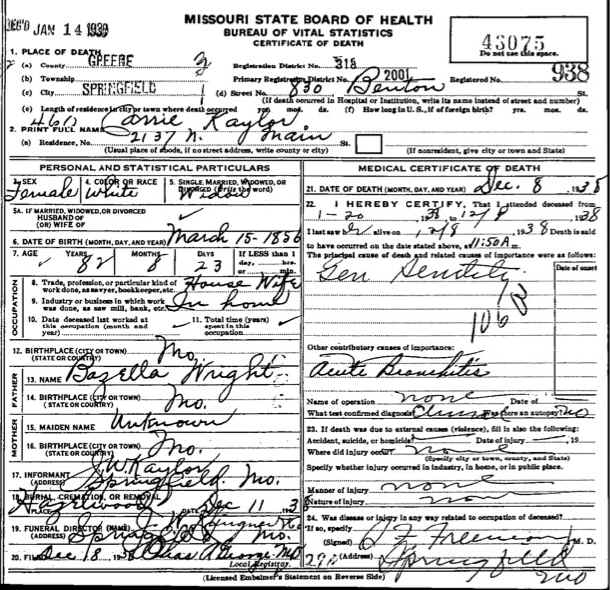 REC'D JAN 14 1939
MISSOURI STATE BOARD OF HEALTH
BUREAU OF VITAL STATISTICS
CERTIFICATE OF DEATH
43075
Do not use this space.
1. PLACE OF DEATH
(a) County GREENE
Registration District No. 318
(b) Township
Primary Registration District No. 2001
Registered No. 938
(c) City SPRINGFIELD
(d) Street No. 830 Benton St.
(If death occurred in Hospital or Institution, write its name instead of street and number)
(e) Length of residence in city or town where death occurred yrs. mos. ds. (f) How long in U.S., if of foreign birth? yrs. mos. ds.
2. PRINT FULL NAME Carrie Kaylor
(a) Residence, No. 2137 N. Main St.
(Usual place of abode, if no street address, write county or city) (If nonresident, give city or town and State)
PERSONAL AND STATISTICAL PARTICULARS
3. SEX Female
4. COLOR OR RACE White
5. SINGLE, MARRIED, WIDOWED, OR DIVORCED (write the word) Widow
5A. IF MARRIED, WIDOWED, OR DIVORCED
HUSBAND OF
(OR) WIFE OF
6. DATE OF BIRTH (MONTH, DAY, AND YEAR) March 15-1856
7. AGE YEARS 82 MONTHS 8 DAYS 23 If LESS than 1 day, hrs. or min.
OCCUPATION
8. Trade, profession, or particular kind of work done, as sawyer, bookkeeper, etc. House Wife
9. Industry or business in which work was done, as saw mill, bank, etc. In home
10. Date deceased last worked at this occupation (month and year)
11. Total time (years) spent in this occupation
12. BIRTHPLACE (CITY OR TOWN) (STATE OR COUNTRY) Mo.
FATHER
13. NAME Bazella Wright
14. BIRTHPLACE (CITY OR TOWN) (STATE OR COUNTRY) Mo.
MOTHER
15. MAIDEN NAME Unknown
16. BIRTHPLACE (CITY OR TOWN) (STATE OR COUNTRY) Mo.
17. INFORMANT J.W. Kaylor
(ADDRESS) Springfield Mo.
18. BURIAL, CREMATION, OR REMOVAL
PLACE Hazelwood DATE Dec 11 38
19. FUNERAL DIRECTOR (NAME)
(ADDRESS) Springfield Mo.
20. FILED Dec 18, 1938 Chas A George MD
Local Registrar.
MEDICAL CERTIFICATE OF DEATH
21. DATE OF DEATH (MONTH, DAY, AND YEAR) Dec. 8, 1938
22. I HEREBY CERTIFY, That I attended deceased from
1-20, 1938, to 12/8, 1938
I last saw alive on 12/8, 1938 Death is said
to have occurred on the date stated above, at 11:50 A.m.
The principal cause of death and related causes of importance were as follows:
Date of onset
Gen Senility
106
Other contributory causes of importance:
Acute Bronchitis
Name of operation none Date of
What test confirmed diagnosis? Clinical Was there an autopsy? no
23. If death was due to external causes (violence), fill in also the following:
Accident, suicide, or homicide? Date of injury , 19
Where did injury occur?
(Specify city or town, county, and State)
Specify whether injury occurred in industry, in home, or in public place.
Manner of injury none
Nature of injury
24. Was disease or injury in any way related to occupation of deceased?
If so, specify
(Signed) Freeman M. D.
(Address) Springfield Mo
(Licensed Embalmer's Statement on Reverse Side)